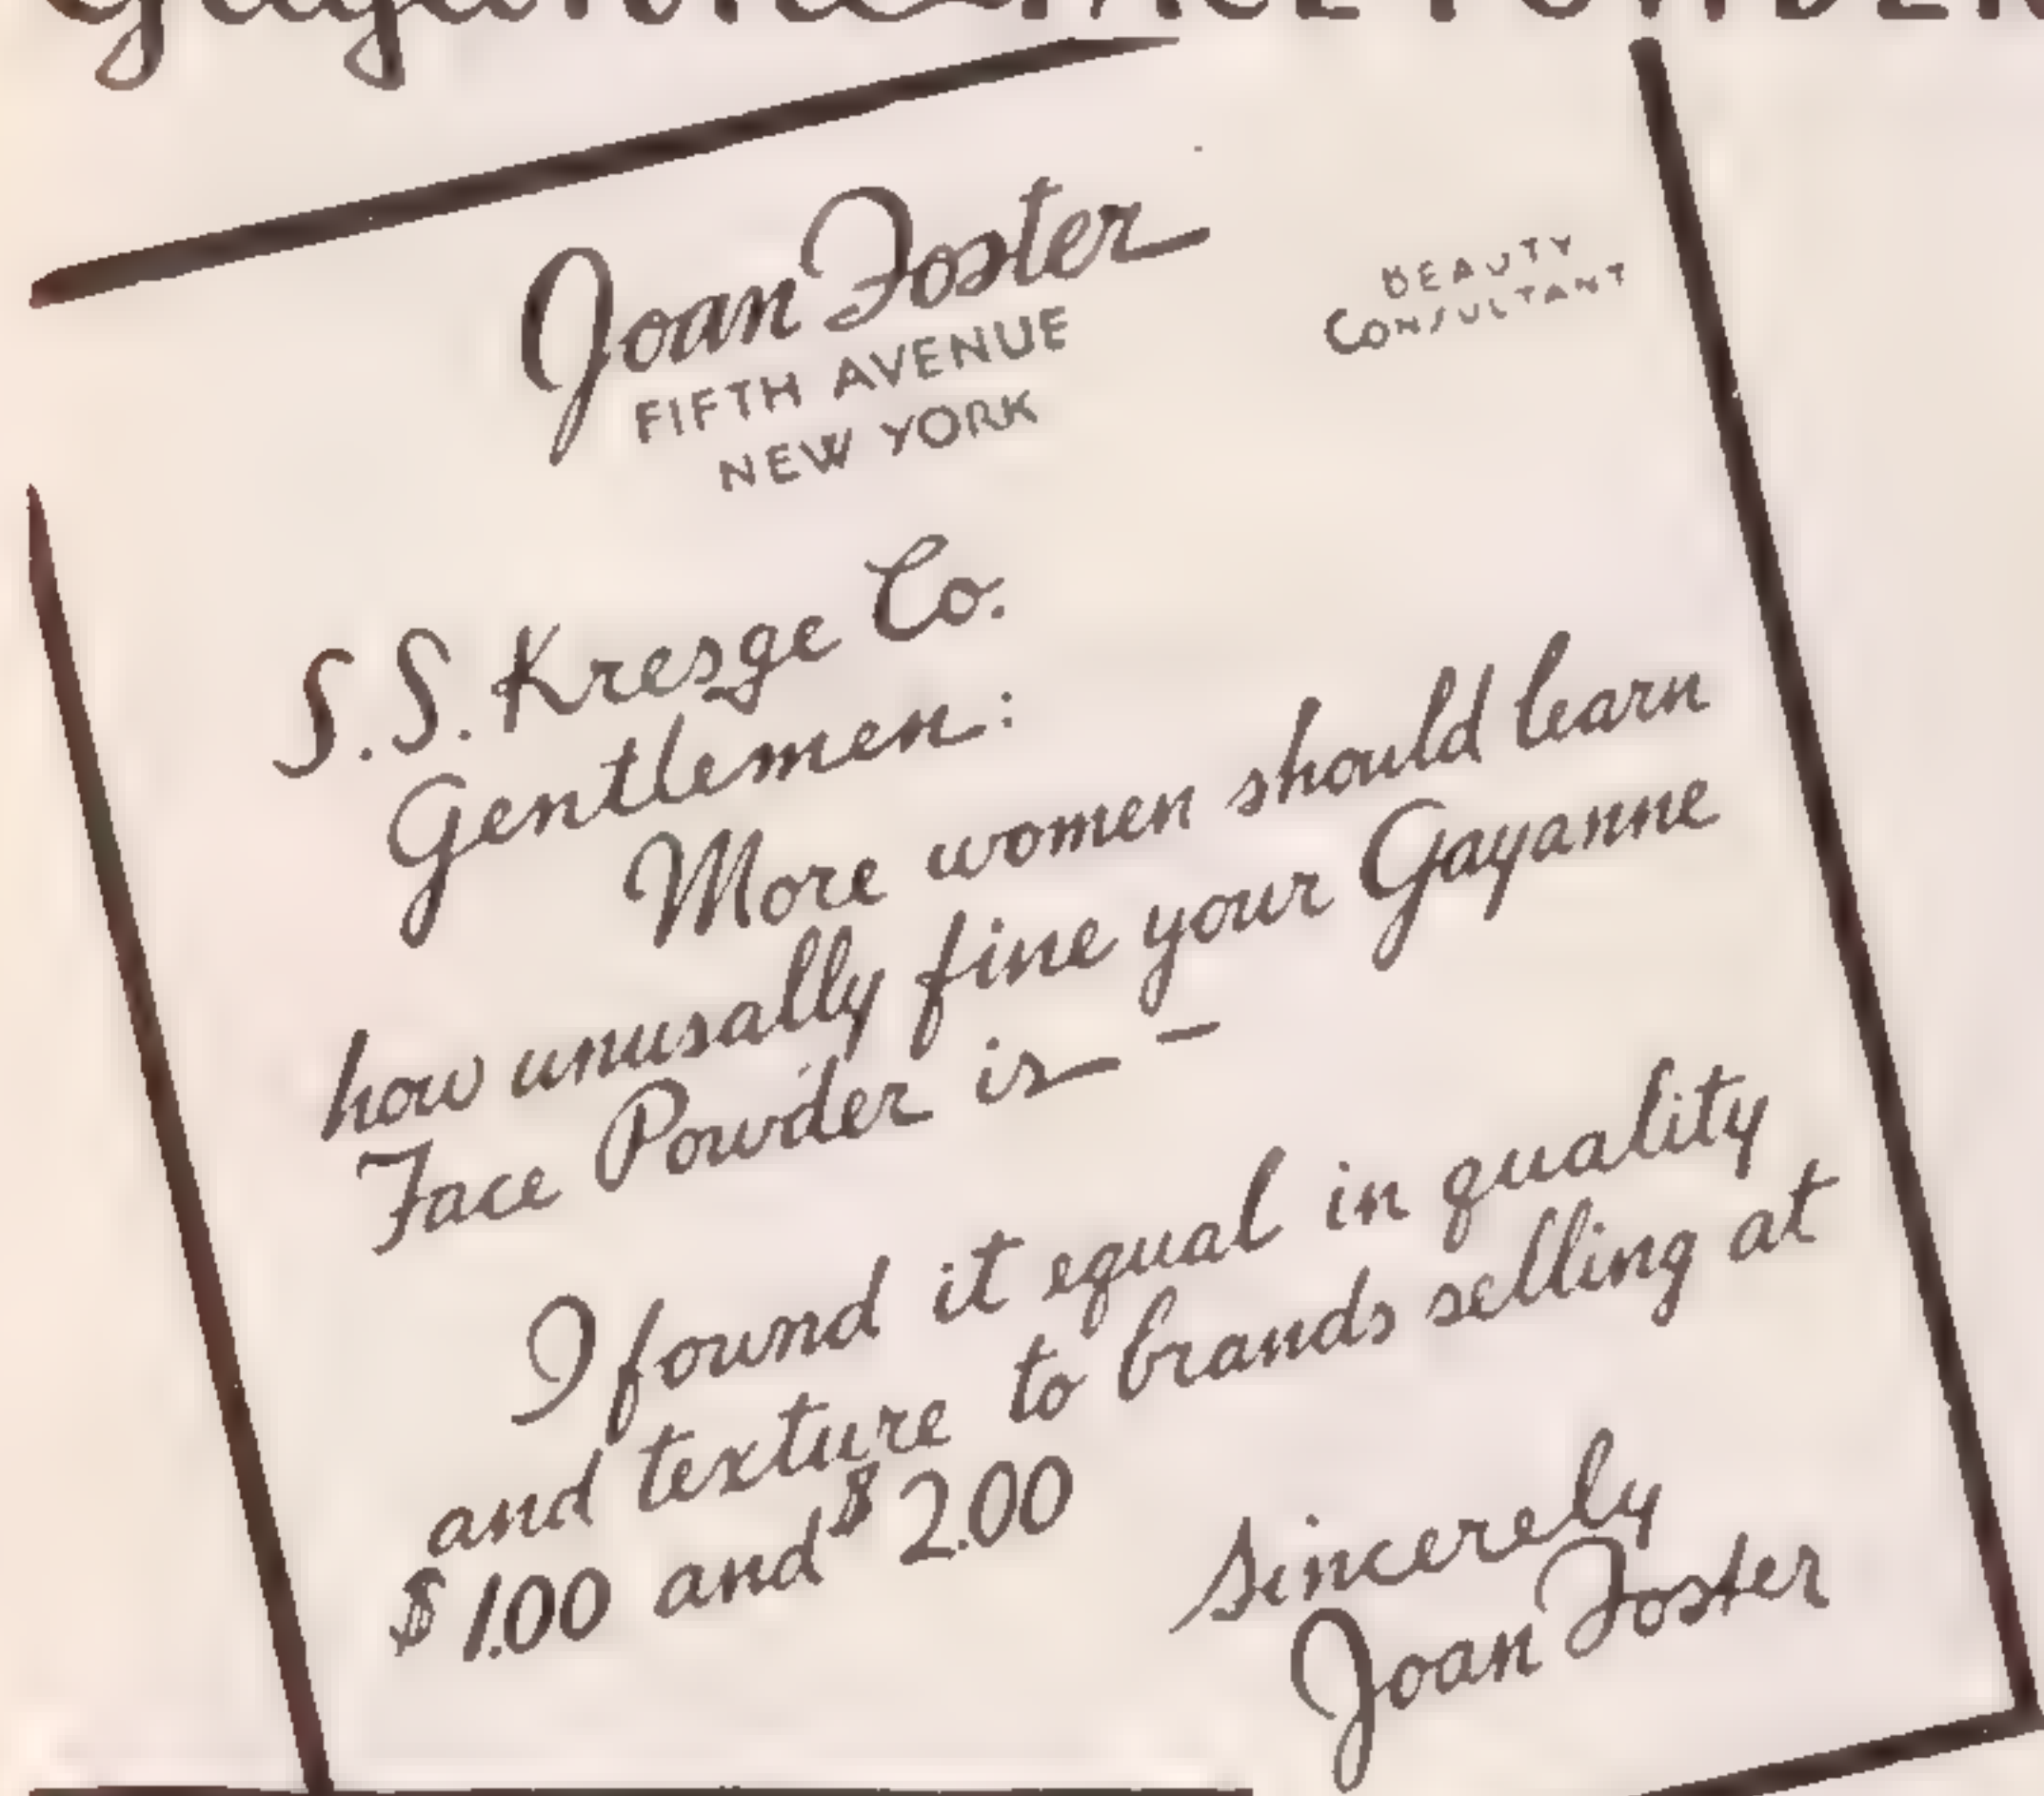 Gayanne FACE POWDER
Joan Foster
FIFTH AVENUE
NEW YORK
BEAUTY
CONSULTANT
S.S. Kresge Co.
Gentlemen:
More women should learn
how unusally fine your Gayanne
Face Powder is — —
I found it equal in quality
and texture to brands selling at
$1.00 and $2.00
Sincerely
Joan Foster